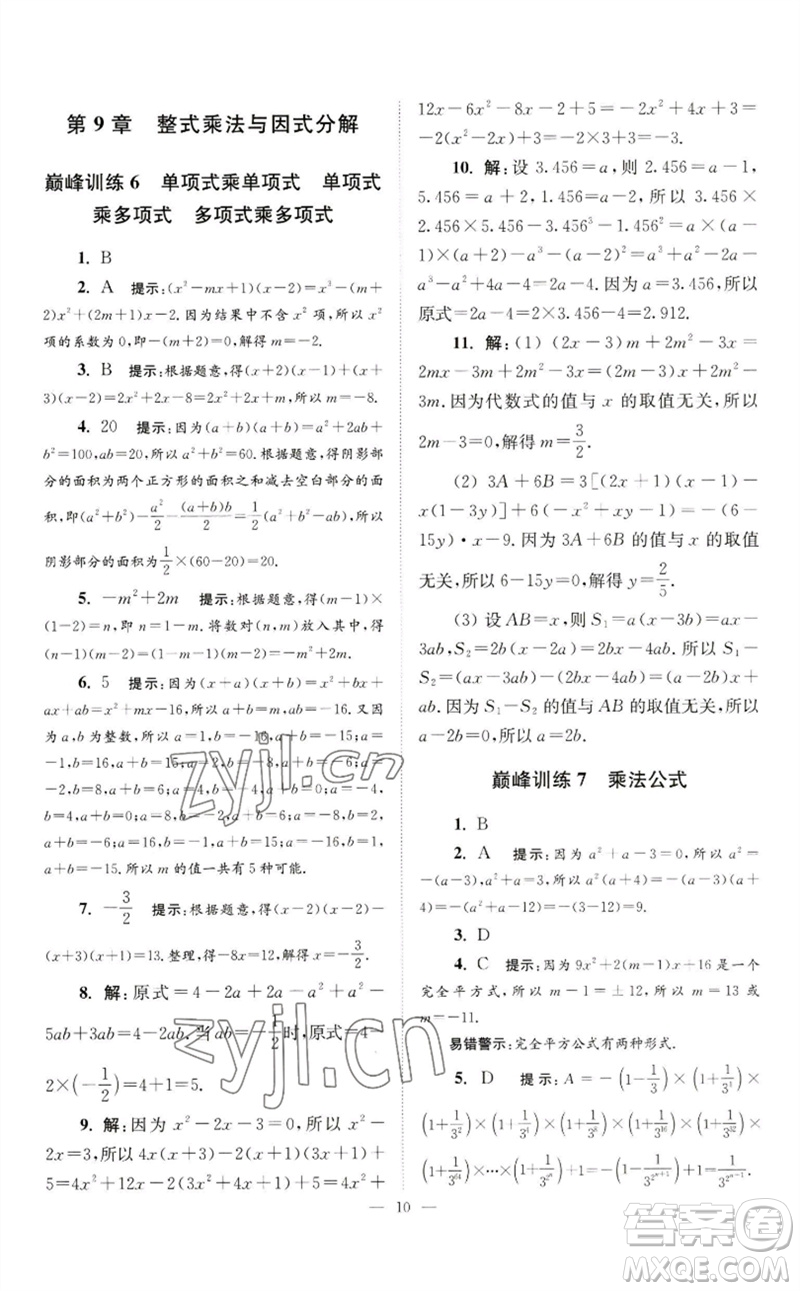 第 9 章　整式乘法与因式分解
巅峰训练 6　单项式乘单项式　单项式
乘多项式　多项式乘多项式
1. B
2. A　提示:(x²-mx+1)(x-2)=x³-(m+
2)x²+(2m+1)x-2. 因为结果中不含 x² 项,所以 x²
项的系数为 0,即-(m+2)=0,解得 m=-2.
3. B　提示:根据题意,得(x+2)(x-1)+(x+
3)(x-2)=2x²+2x-8=2x²+2x+m,所以 m=-8.
4. 20　提示:因为(a+b)(a+b)=a²+2ab+
b²=100,ab=20,所以 a²+b²=60. 根据题意,得阴影部
分的面积为两个正方形的面积和减去空白部分的面
积,即(a²+b²)-a²/2-(a+b)b/2=1/2(a²+b²-ab),所以
阴影部分的面积为1/2×(60-20)=20.
5. -m²+2m　提示:根据题意,得(m-1)×
(1-2)=n,即 n=1-m. 将数对(n,m)放入其中,得
(n-1)(m-2)=(1-m-1)(m-2)=-m²+2m.
6. 5　提示:因为(x+a)(x+b)=x²+bx+
ax+ab=x²+mx-16,所以 a+b=m,ab=-16. 又因
为 a,b 为整数,所以 a=1,b=-16,a+b=-15;a=
-1,b=16,a+b=15;a=-2,b=8,a+b=6;a=2,b=
-8,a+b=-6;a=4,b=-4,a+b=0;a=-4,b=4,
a+b=0;a=8,b=-2,a+b=6;a=-8,b=2,a+b=
-6;a=16,b=-1,a+b=15;a=-16,b=1,
a+b=-15. 所以 m 的值一共有 5 种可能.
7. -3/2　提示:根据题意,得(x-2)(x-2)-
(x+3)(x+1)=13. 整理,得-8x=12,解得 x=-3/2.
8. 解:原式=4-2a+2a-a²+a²-
5ab+3ab=4-2ab. 当 ab=-1/2时,原式=4-
2×(-1/2)=4+1=5.
9. 解:因为 x²-2x-3=0,所以 x²-
2x=3,所以 4x(x+3)-2(1+x)(3x+1)+
5=4x²+12x-2(3x+1+3x²+x)+5=4x²+
12x-6x²-8x-2+5=-2x²+4x+3=
-2(x²-2x)+3=-2×3+3=-3.
10. 解:设 3.456=a,则 2.456=a-1,
5.456=a+2,1.456=a-2,所以 3.456×
2.456×5.456-3.456³-1.456²=a×(a-
1)×(a+2)-a³-(a-2)²=a³+a²-2a-
a³-a²+4a-4=2a-4. 因为 a=3.456,所以
原式=2a-4=2×3.456-4=2.912.
11. 解:(1) (2x-3)m+2m²-3x=
2mx-3m+2m²-3x=(2m-3)x+2m²-
3m. 因为代数式的值与 x 的取值无关,所以
2m-3=0,解得 m=3/2.
(2) 3A+6B=3[(2x+1)(x-1)-
x(1-3y)]+6(-x²+xy-1)=-(6-
15y)·x-9. 因为 3A+6B 的值与 x 的取值
无关,所以 6-15y=0,解得 y=2/5.
(3) 设 AB=x,所以 S₁=a(x-3b)=ax-
3ab,S₂=2b(x-2a)=2bx-4ab. 所以 S₁-
S₂=(ax-3ab)-(2bx-4ab)=(a-2b)x+
ab. 因为 S₁-S₂ 的值与 AB 的取值无关,所以
a-2b=0,所以 a=2b.
巅峰训练 7　乘法公式
1. B
2. A　提示:因为 a²+a-3=0,所以 a²=
-(a-3),所以 a²(a+4)=-(a-3)(a+
4)=-(a²+a-12)=-(3-12)=9.
3. D
4. C　提示:因为 9x²+2(m-1)x+16 是一个
完全平方式,所以 m-1=±12,所以 m=13 或
m=-11.
易错警示:完全平方公式有两种形式.
5. D　提示:A=-(1-1/3)×(1+1/3)×
(1+1/3²)×(1+1/3⁴)×(1+1/3⁸)×(1+1/3¹⁶)×(1+1/3³²)×
(1+1/3⁶⁴)×…×(1+1/3^(2^n))+1/3^(2^(n+1))=-(1-1/3^(2^(n+1)))+
— 10 —
zyjl.cn
zyjl.cn
答案圈
MXQE.COM